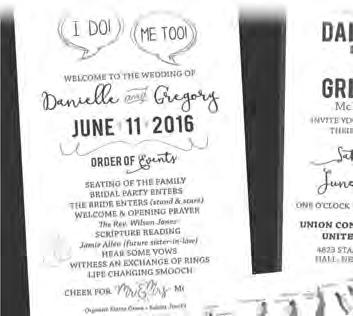 I DO!
ME TOO!
WELCOME TO THE WEDDING OF
Danielle and Gregory
JUNE 11 2016
ORDER OF Events
SEATING OF THE FAMILY
BRIDAL PARTY ENTERS
THE BRIDE ENTERS (stand & stare)
WELCOME & OPENING PRAYER
The Rev. Wilson Jones
SCRIPTURE READING
Jamie Allen (future sister-in-law)
HEAR SOME VOWS
WITNESS AN EXCHANGE OF RINGS
LIFE CHANGING SMOOCH
CHEER FOR Mr & Mrs
DA
GRE
Mc
INVITE YO
THEIR
Sat
June
ONE O'CLOCK
UNION CON
UNITE
4823 STA
HALL, NE